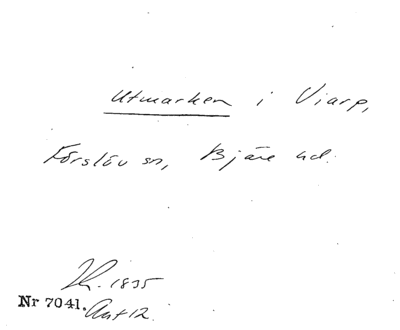 Utmarken i Viarp,
Förslöv sn, Bjäre hd.
1835
Nr 7041. Akt 12.